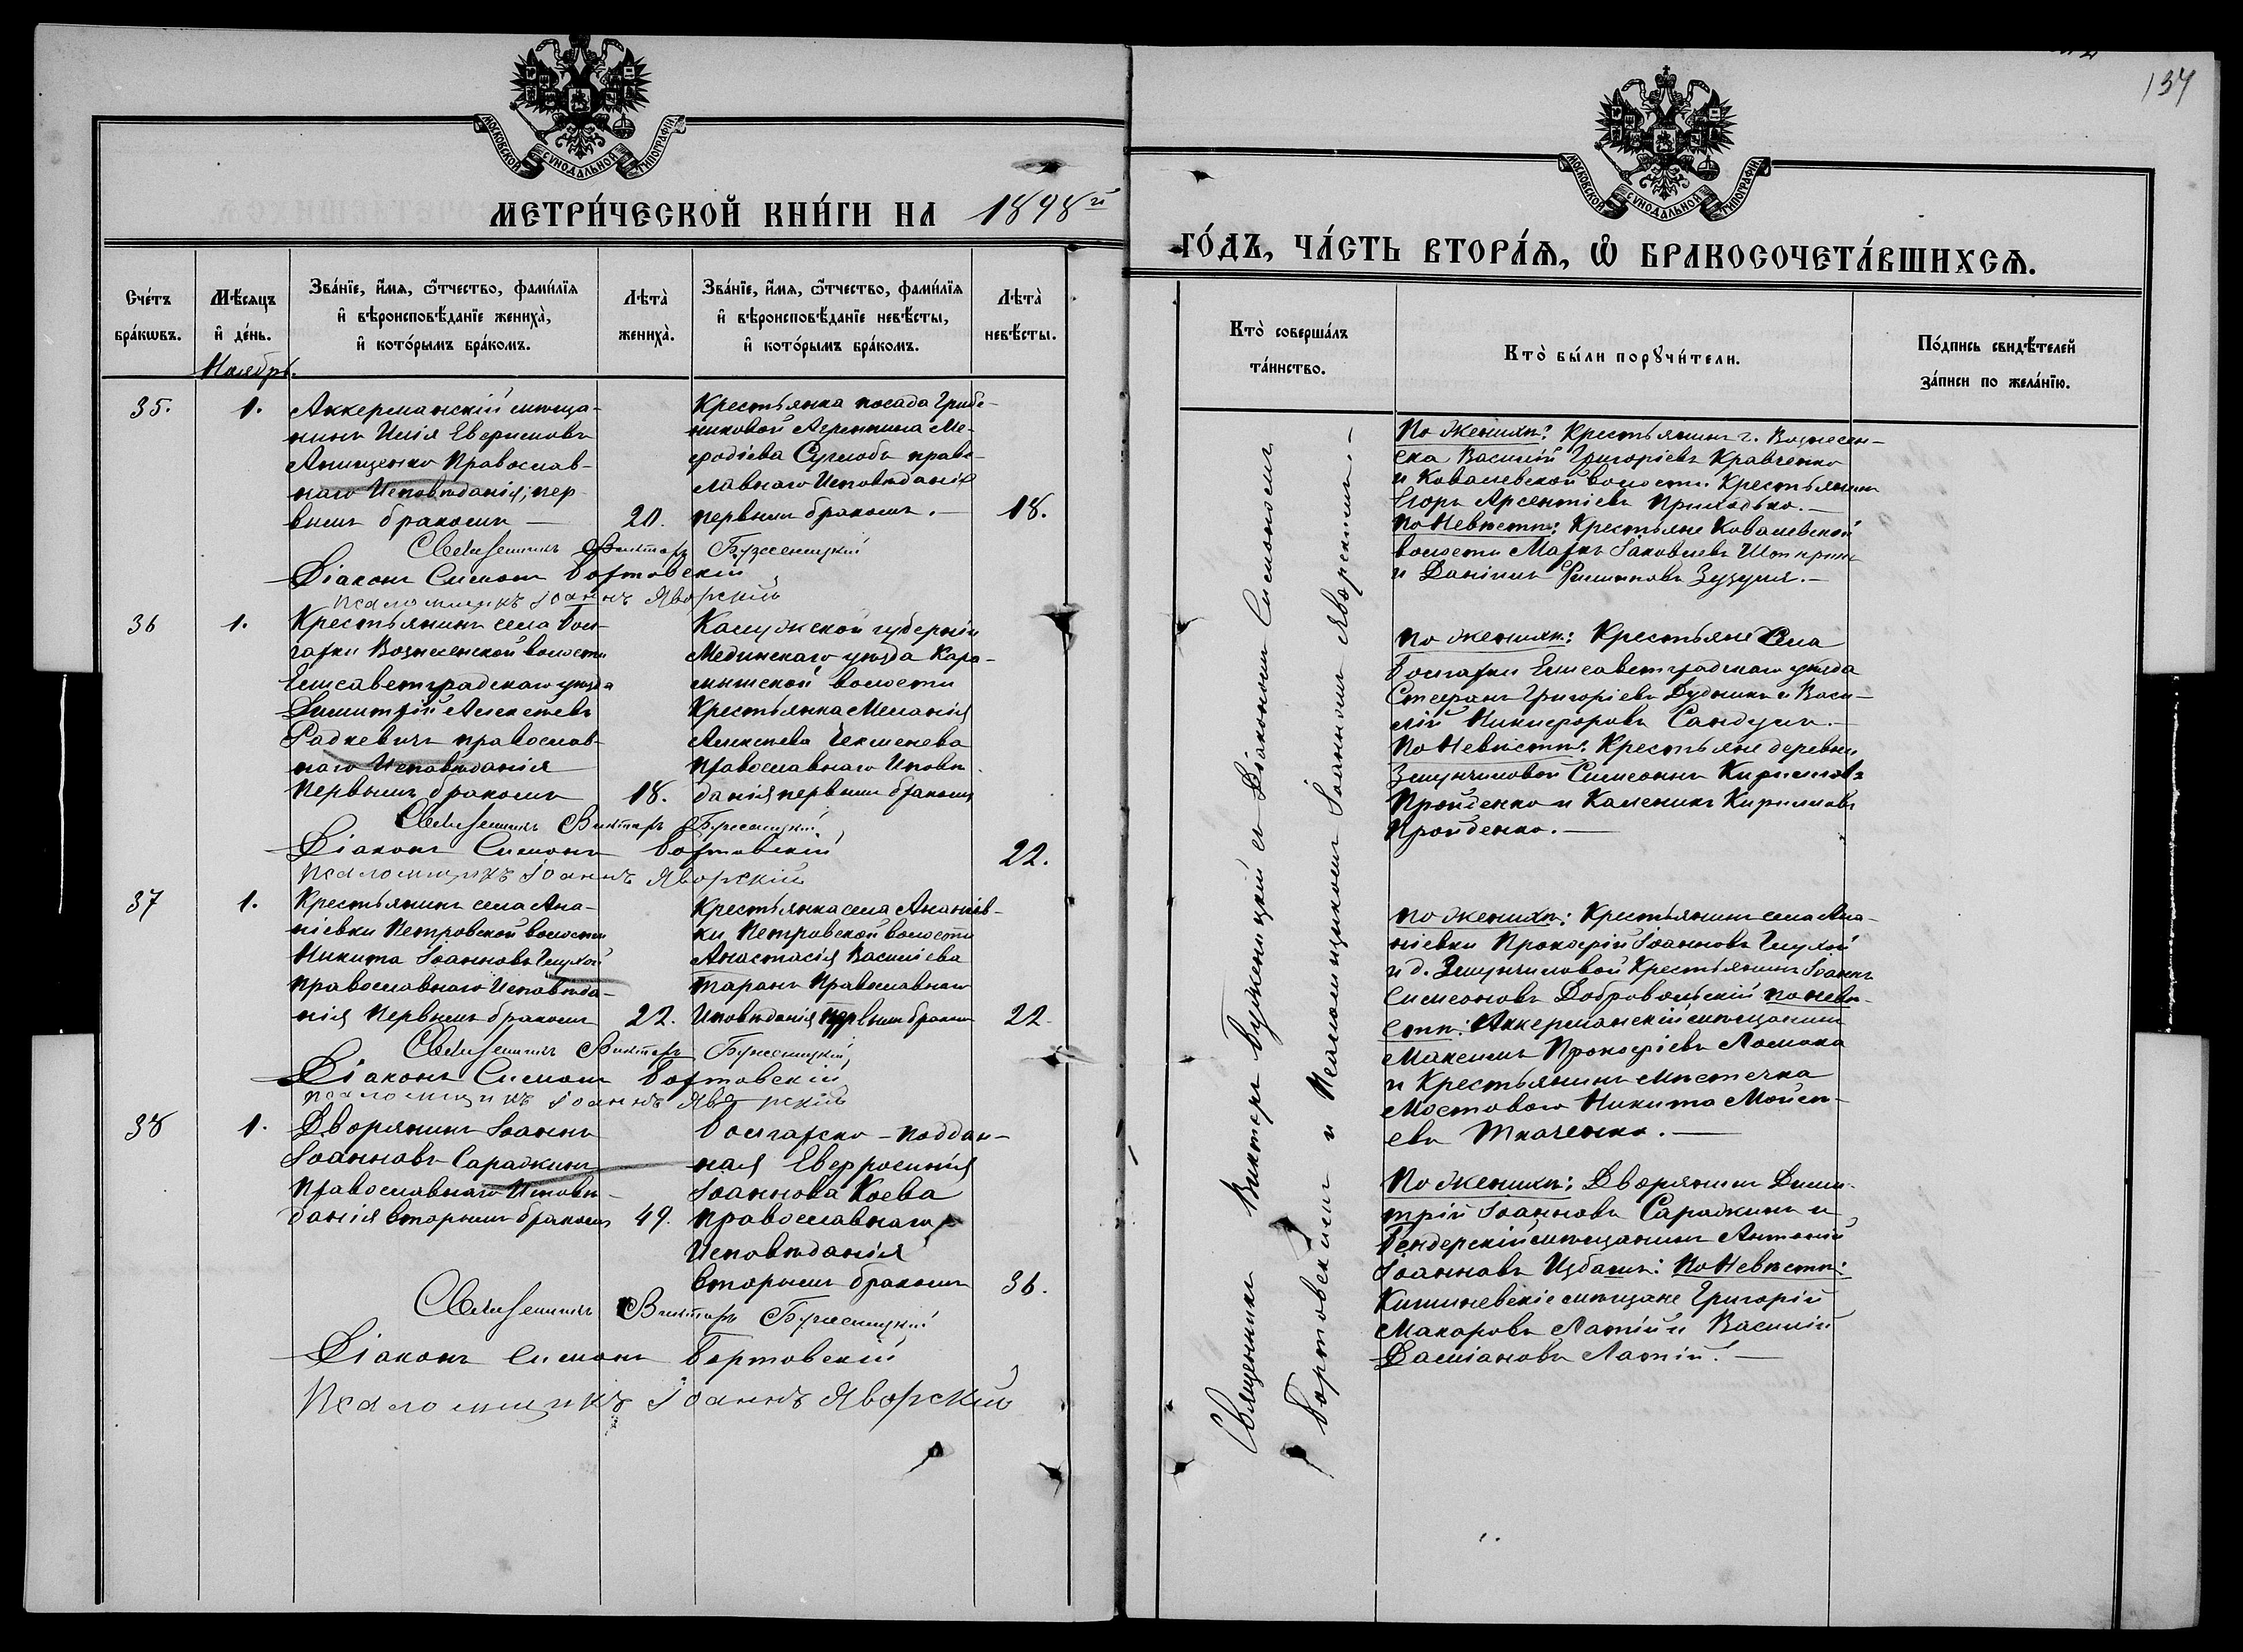 МОСКОВСКОЙ СѴНОДАЛЬНОЙ ТИПОГРАФІИ
МЕТРИ́ЧЕСКОЙ КНИ́ГИ НА 1898й
Сче́тъ бра́кωвъ.
Мѣ́сяцъ и҆ де́нь.
Зва́нїе, и҆́мѧ, ѻ҆́тчество, фами́лїѧ и҆ вѣроисповѣ́данїе жениха̀, и҆ кото́рымъ бра́комъ.
Лѣта̀ жениха̀.
Зва́нїе, и҆́мѧ, ѻ҆́тчество, фами́лїѧ и҆ вѣроисповѣ́данїе невѣ́сты, и҆ кото́рымъ бра́комъ.
Лѣта̀ невѣ́сты.
Ноябрь.
35.
1.
Аккерманскій мѣща-
нинъ Илія Евфимовъ
Анищенко Православ-
наго Исповѣданія; пер
вымъ бракомъ —
20.
Крестьянка посада
Агриппина Ме-
фодіева право-
славнаго Исповѣданія
первымъ бракомъ. —
18.
Священникъ Викторъ Буженицкій
Діаконъ Симонъ Бортовскій
Псаломщикъ Іоаннъ Яворскій
36
1.
Крестьянинъ села Бол-
гарки Вознесенской волости
Елисаветградскаго уѣзда
Димитрій Алексѣевъ
Радкевичъ православ-
наго Исповѣданія
Первымъ бракомъ
18.
Калужской губерніи
Медынскаго уѣзда Кара-
мышской волости
Крестьянка Меланія
Алексѣева Чекменева
Православнаго Исповѣ
данія первымъ бракомъ
22.
Священникъ Викторъ Буженицкій
Діаконъ Симонъ Бортовскій
Псаломщикъ Іоаннъ Яворскій
37
1.
Крестьянинъ села Ана-
ніевки Петровской волости
Никита Іоанновъ Глухой
православнаго Исповѣда-
нія Первымъ бракомъ
22.
Крестьянка села Ананіев-
ки Петровской волости
Анастасія Василіева
Таранъ Православнаго
Исповѣданія первымъ бракомъ
22.
Священникъ Викторъ Буженицкій
Діаконъ Симонъ Бортовскій
Псаломщикъ Іоаннъ Яворскій
38
1.
Дворянинъ Іоаннъ
Іоанновъ Сарадкинъ
Православнаго Исповѣ-
данія вторымъ бракомъ
49.
Болгарско-поддан-
ная Евфросинія
Іоаннова Коева
православнаго
Исповѣданія
вторымъ бракомъ
36.
Священникъ Викторъ Буженицкій
Діаконъ Симонъ Бортовскій
Псаломщикъ Іоаннъ Яворскій
137
МОСКОВСКОЙ СѴНОДАЛЬНОЙ ТИПОГРАФІИ
ГО́ДЪ, ЧА́СТЬ ВТОРА́Ѧ, Ѽ БРАКОСОЧЕТА́ВШИХСѦ.
Кто̀ соверша́лъ та́инство.
Кто̀ бы́ли порꙋчи́тели.
По́дпись свидѣ́телей за́писи по жела́нїю.
Священникъ Викторъ Буженицкій съ Діакономъ Симономъ
Бортовскимъ и Псаломщикомъ Іоанномъ Яворскимъ. —
По женихѣ: Крестьянинъ г. Вознесен-
ска Василій Григоріевъ Кравченко
и Ковалевской волости Крестьянинъ
Егоръ Арсентіевъ Приходько. —
По Невѣстѣ: Крестьяне Ковалевской
волости Маркъ Іаковлевъ
и Даніилъ Филипповъ Зузуля. —
По женихѣ: Крестьяне Села
Болгарки Елисаветградскаго уѣзда
Стефанъ Григоріевъ Дудникъ и Васи-
лій Никифоровъ Сандулъ. —
По Невѣстѣ: Крестьяне деревни
Симеонъ Кирилловъ
Пройденко и Каленикъ Кирилловъ
Пройденко. —
По женихѣ: Крестьянинъ села Ана-
ніевки Прокофій Іоанновъ Глухой
и д. Крестьянинъ Іоаннъ
Симеоновъ Добровольскій по невѣ-
стѣ: Аккерманскій мѣщанинъ
Максимъ Прокофіевъ Ломака
и Крестьянинъ мѣстечка
Мостового Никита Моисе-
евъ Ткаченко. —
По женихѣ: Дворянинъ Дими-
трій Іоанновъ Сарадкинъ и
Бендерскій мѣщанинъ Антоній
Іоанновъ Избашъ: По Невѣстѣ:
Кишиневскіе мѣщане Григорій
Макаровъ Латій и Василій
Даміановъ Латій. —